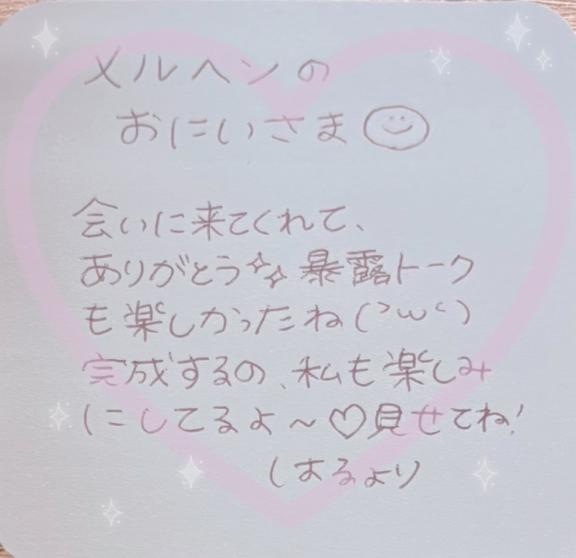 メルヘンの
おにいさま
会いに来てくれて、
ありがとう✨暴露トーク
も楽しかったね(>ω<)
完成するの、私も楽しみ
にしてるよ～♡見せてね!
はるより